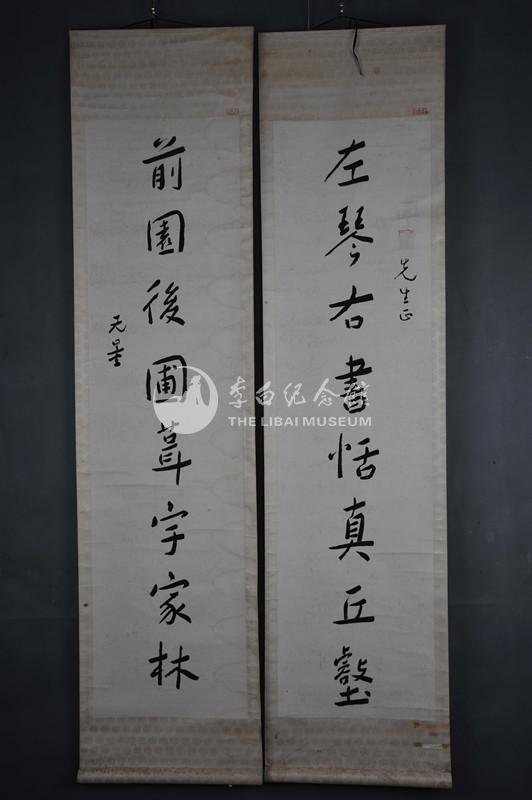 左琴右書恬真丘壑
先生正
前園後圃葺宇家林
无量
李白纪念馆
THE LIBAI MUSEUM